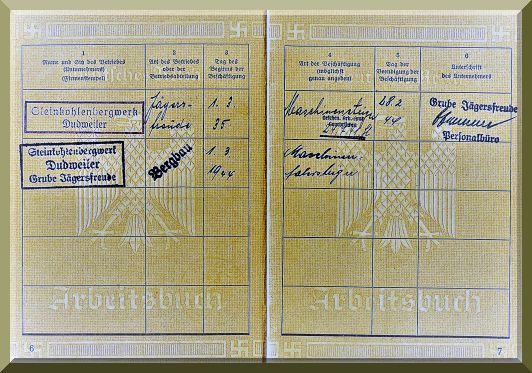 1
Name und Sitz des Betriebes
(Unternehmens)
(Firmenstempel)
2
Art des Betriebes
oder der
Betriebsabteilung
3
Tag des
Beginns der
Beschäftigung
Steinkohlenbergwerk
Dudweiler
Jägers-
freude
1. 3.
35
Steinkohlenbergwerk
Dudweiler
Grube Jägersfreude
Bergbau
1. 3
1944
Arbeitsbuch
6
4
Art der Beschäftigung
(möglichst
genau angeben)
5
Tag der
Beendigung der
Beschäftigung
6
Unterschrift
des Unternehmers
Maschinensteiger
28.2
44
Grube Jägersfreude
Personalbüro
Maschinen
fahrsteiger
Arbeitsbuch
7